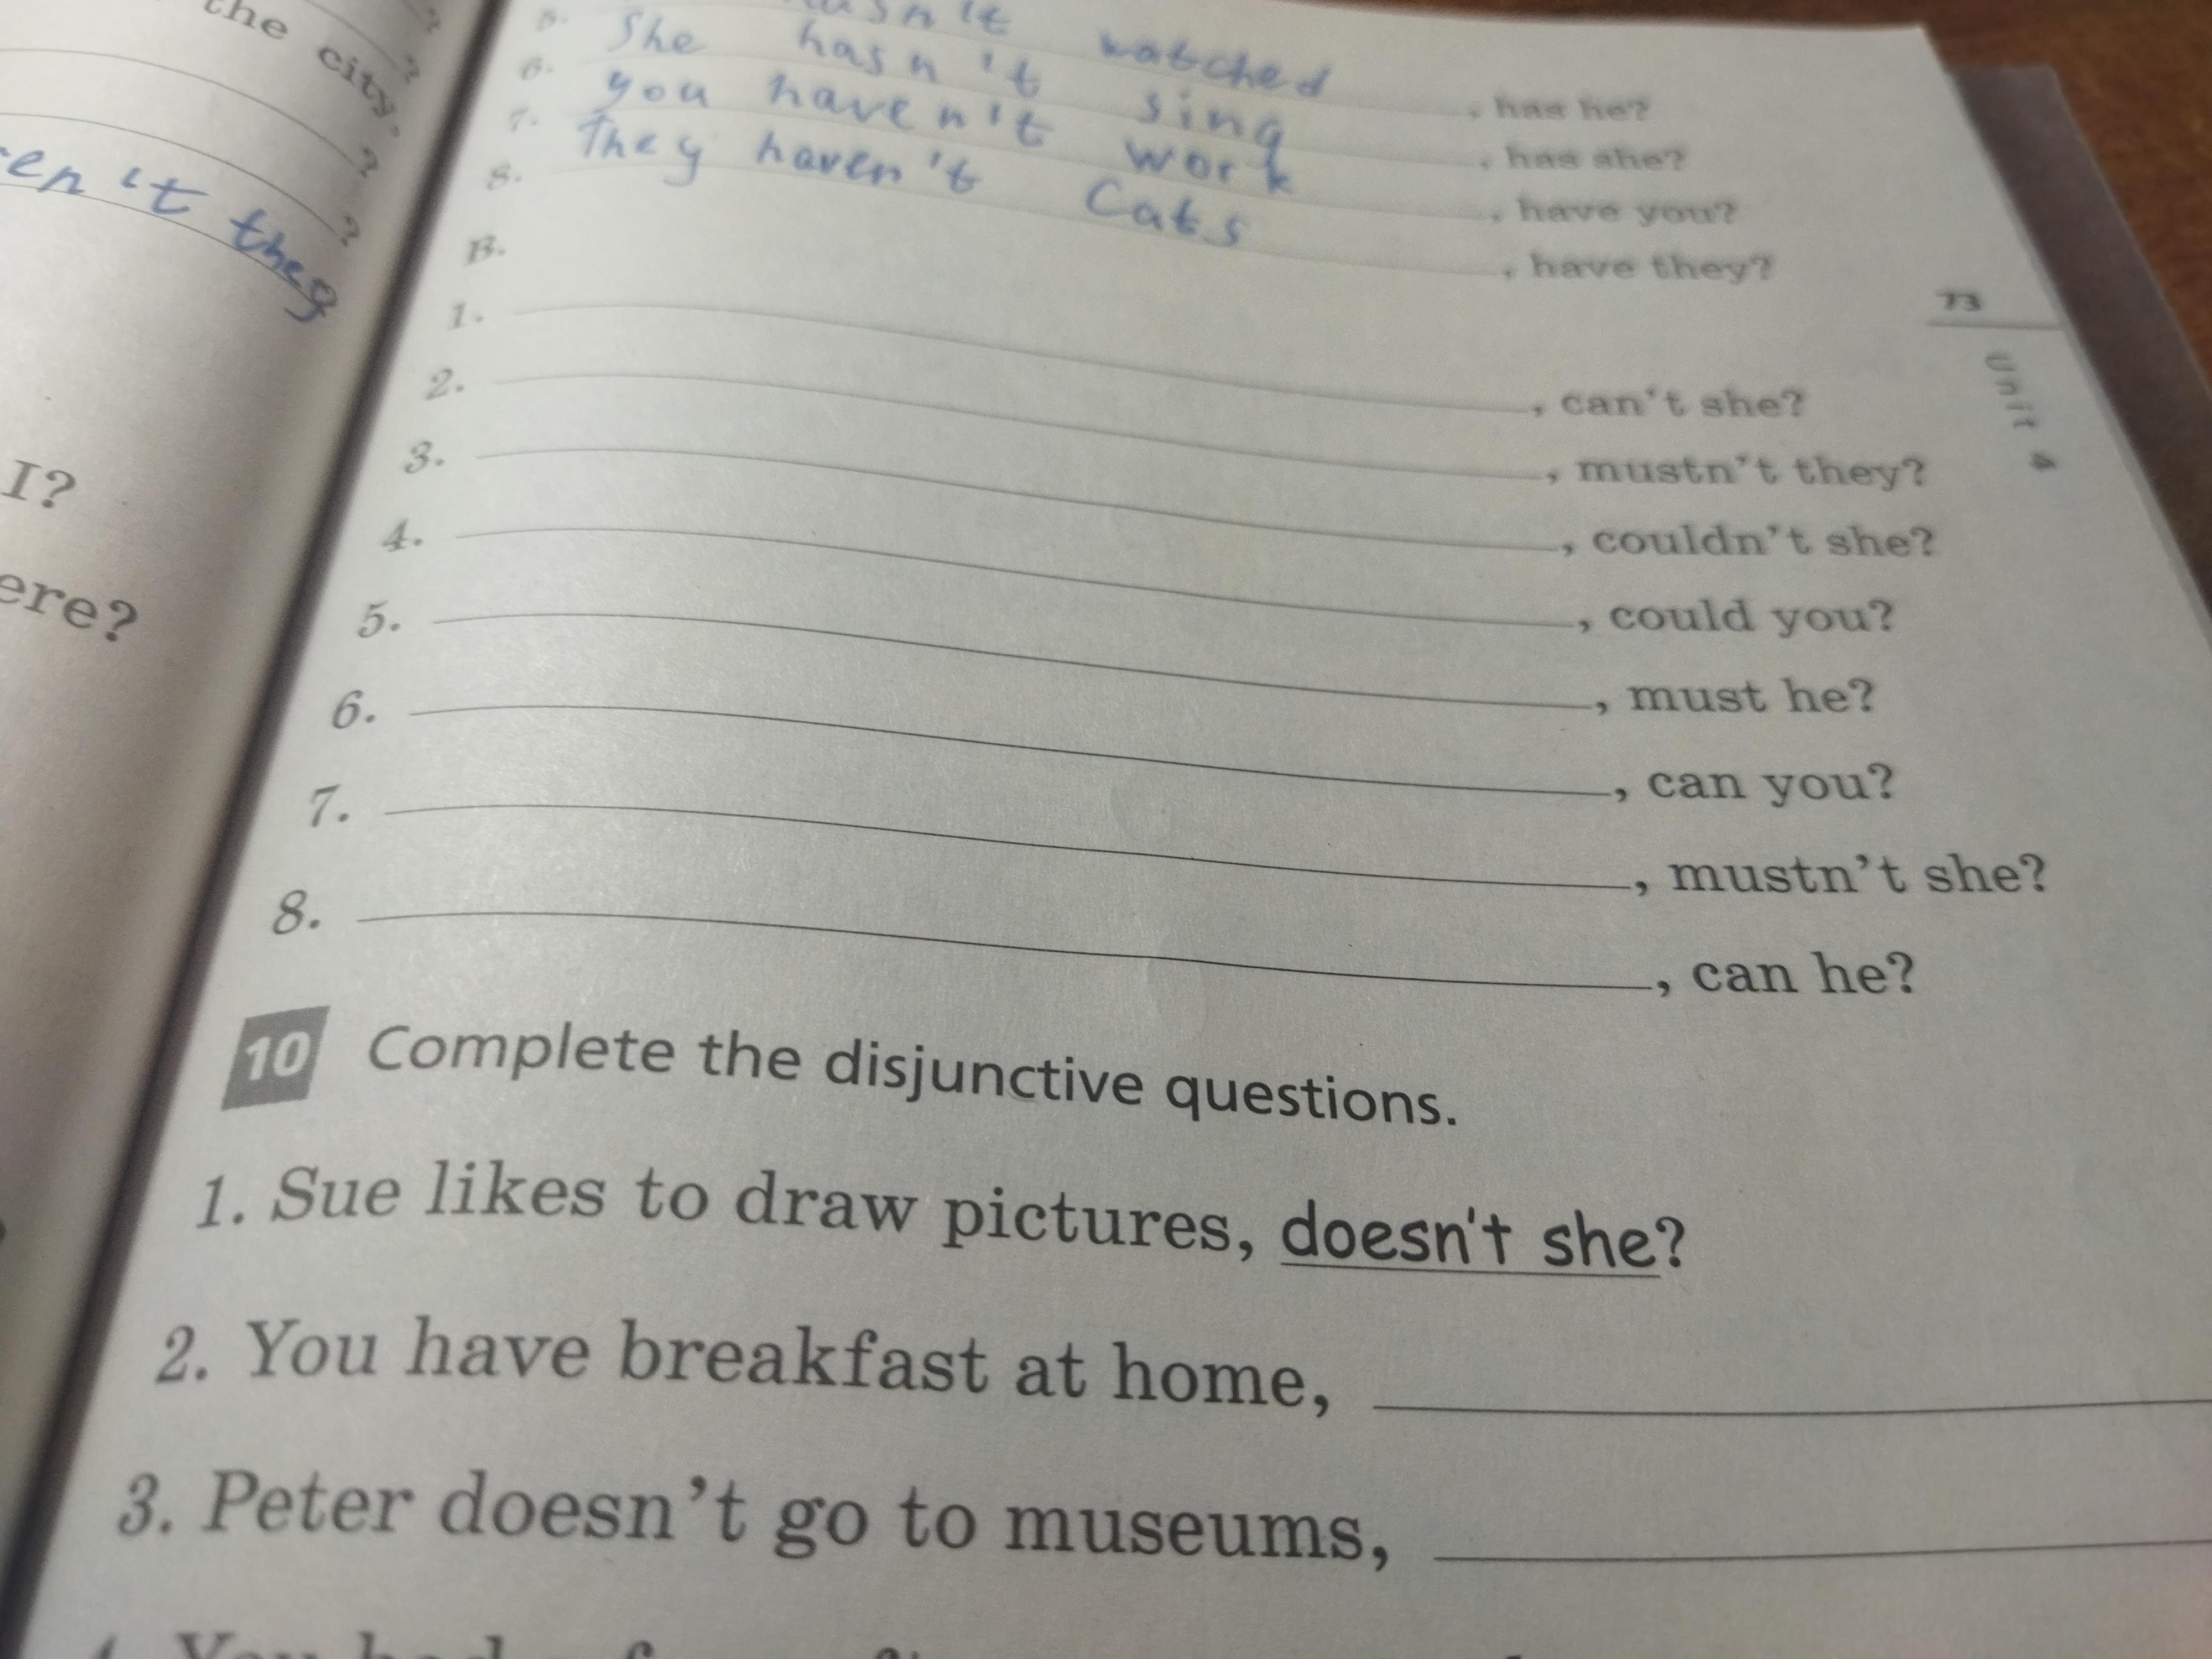 the city.
?
?
?
?
en't they
I?
ere?
5. n't watched , has he?
6. She hasn't sing , has she?
7. you haven't work , have you?
8. They haven't Cats , have they?
B.
1. , can't she?
2. , mustn't they?
3. , couldn't she?
4. , could you?
5. , must he?
6. , can you?
7. , mustn't she?
8. , can he?
73
Unit 4
10 Complete the disjunctive questions.
1. Sue likes to draw pictures, doesn't she?
2. You have breakfast at home,
3. Peter doesn't go to museums,